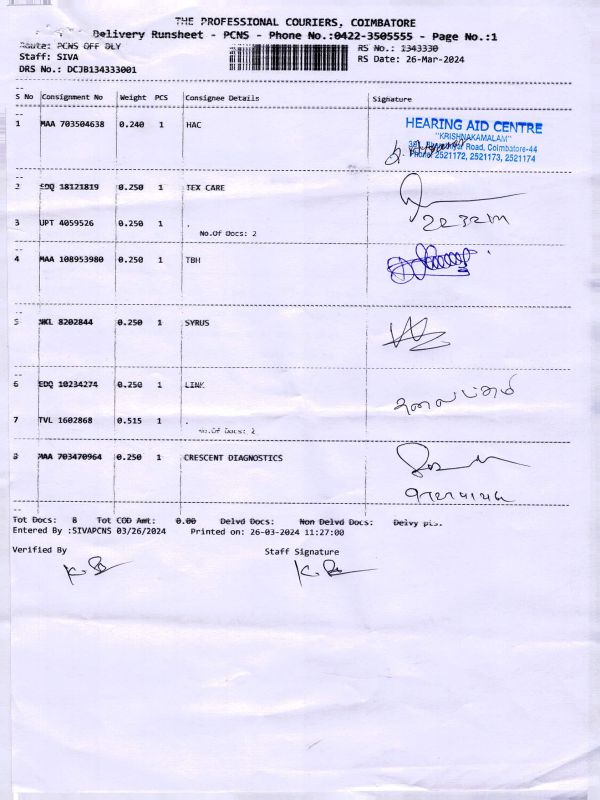 THE PROFESSIONAL COURIERS, COIMBATORE
Delivery Runsheet - PCNS - Phone No.:0422-3505555 - Page No.:1
Route: PCNS OFF DLY
RS No.: 1343330
Staff: SIVA
RS Date: 26-Mar-2024
DRS No.: DCJB134333001
S No Consignment No Weight PCS Consignee Details Signature
1 MAA 703504638 0.240 1 HAC
HEARING AID CENTRE
"KRISHNAKAMALAM"
Road, Coimbatore-44
Phone: 2521172, 2521173, 2521174
2 EDQ 18121819 0.250 1 TEX CARE
3 UPT 4059526 0.250 1 .
No.Of Docs: 2
4 MAA 108953980 0.250 1 TBH
5 NKL 8202844 0.250 1 SYRUS
6 EDQ 10234274 0.250 1 LINK
7 TVL 1602868 0.515 1 .
No.Of Docs: 2
8 MAA 703470964 0.250 1 CRESCENT DIAGNOSTICS
Tot Docs: 8 Tot COD Amt: 0.00 Delvd Docs: Non Delvd Docs: Delvy pis.
Entered By :SIVAPCNS 03/26/2024 Printed on: 26-03-2024 11:27:00
Verified By Staff Signature